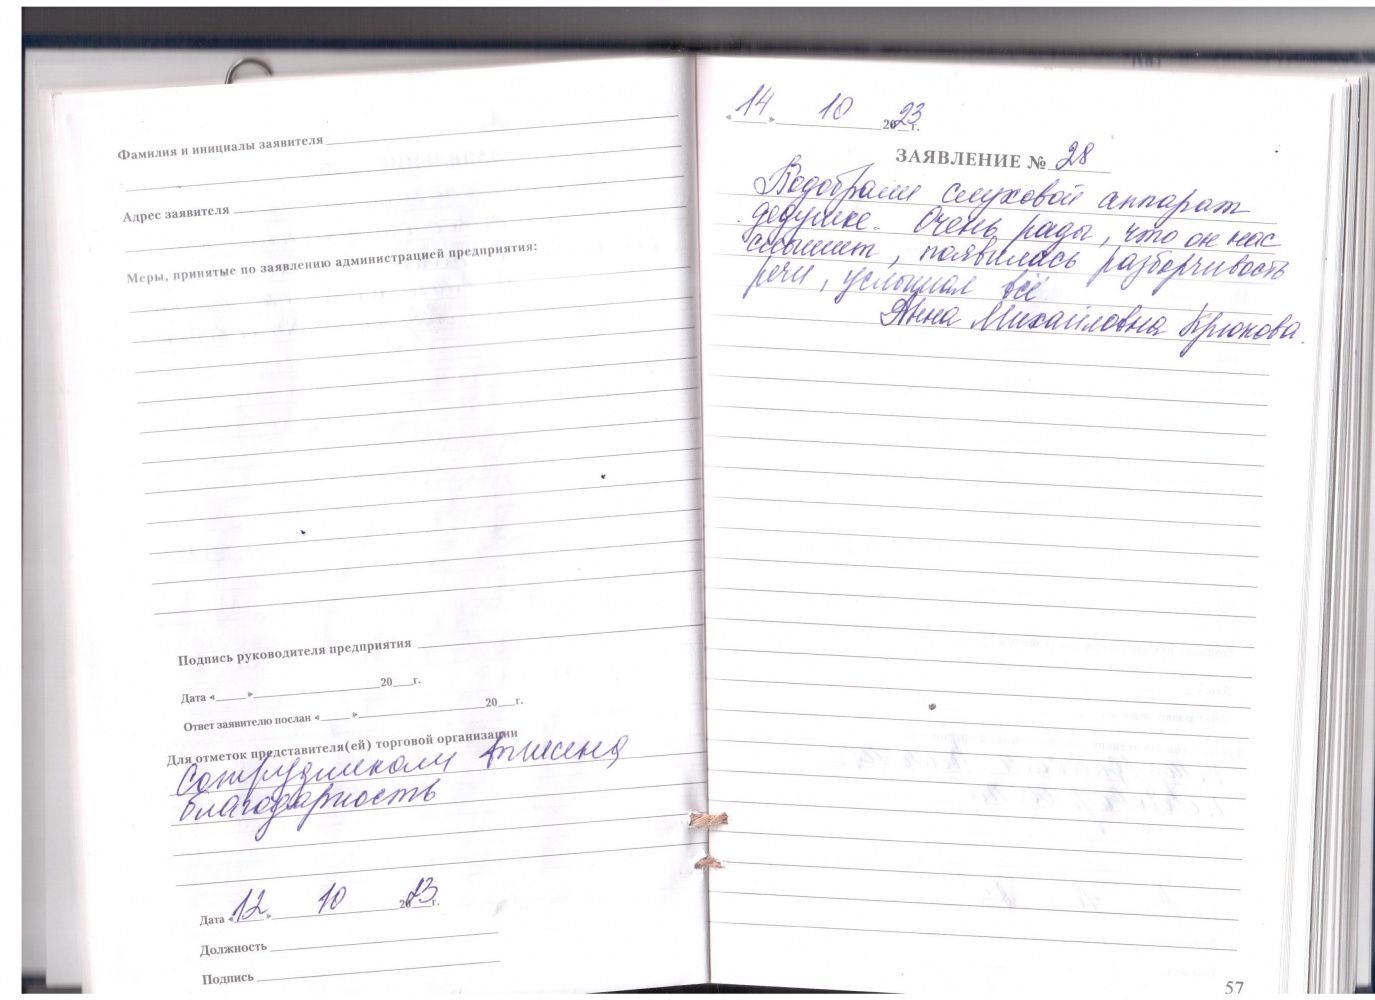 Фамилия и инициалы заявителя
Адрес заявителя
Меры, принятые по заявлению администрацией предприятия:
Подпись руководителя предприятия
Дата « » 20 г.
Ответ заявителю послан « » 20 г.
Для отметок представителя(ей) торговой организации
Сотрудникам
благодарность
Дата «12» 10 2023 г.
Должность
Подпись
«14» 10 2023 г.
ЗАЯВЛЕНИЕ № 28
Подобрали слуховой аппарат
дедушке. Очень рады, что он нас
слышит, появилась разборчивость
речи, услышал всё
Анна Михайловна Крюкова.
57